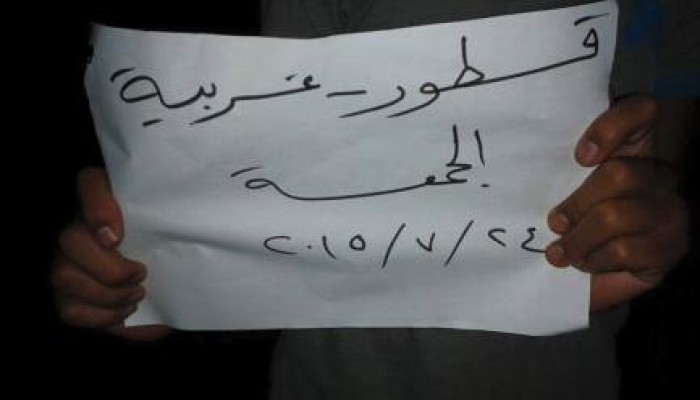 قطور - غربية
الجمعة
٢٤/٧/٢٠١٥